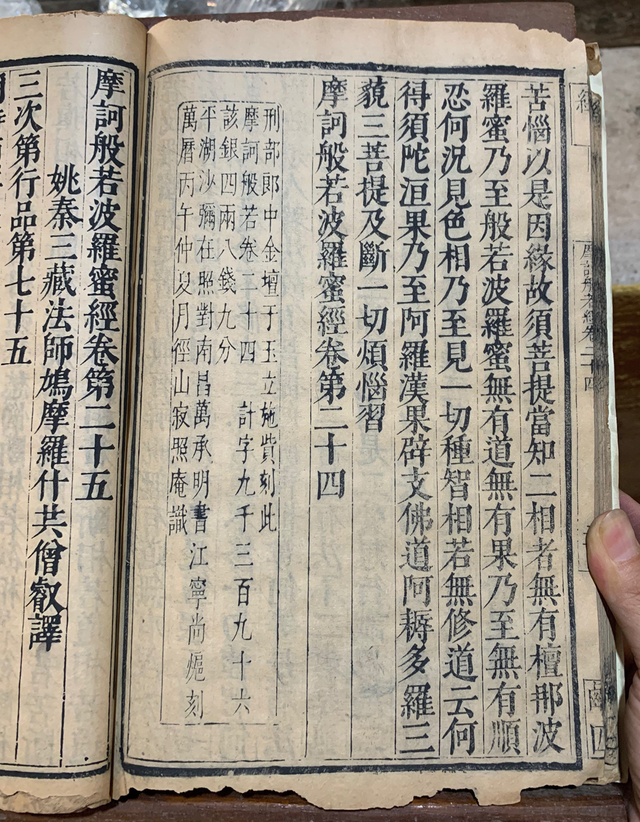 摩訶般若經卷二十四
苦惱以是因緣故須菩提當知二相者無有檀那波
羅蜜乃至般若波羅蜜無有道無有果乃至無有順
忍何況見色相乃至見一切種智相若無修道云何
得須陀洹果乃至阿羅漢果辟支佛道阿耨多羅三
藐三菩提及斷一切煩惱習
摩訶般若波羅蜜經卷第二十四
刑部郎中金壇于玉立施貲刻此
摩訶般若卷二十四 計字九千三百九十六
該銀四兩八錢九分
平湖沙彌在照對南昌萬承明書江寧尚刻
萬曆丙午仲夏月徑山寂照庵識
摩訶般若波羅蜜經卷第二十五
姚秦三藏法師鳩摩羅什共僧叡譯
三次第行品第七十五